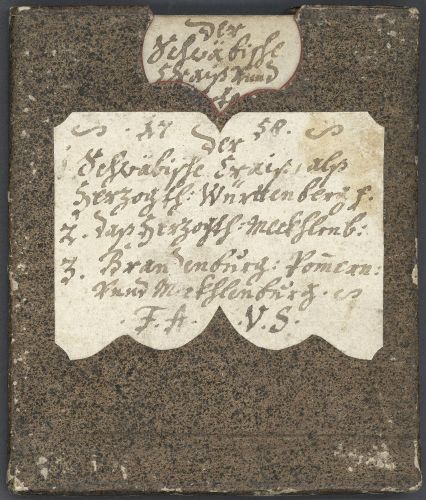 Der
Schwäbische
Craiß vnnd
∽ · 17 58 · ∽
Der
Schwäbische Craiß, alß
Herzogth: Württenberg f.
2. daß Herzogth: Meckhlenb:
3. Brandenburg: Pom̅ern:
vnnd Meckhlenburg. ∽
· F. A. · V. S. ·